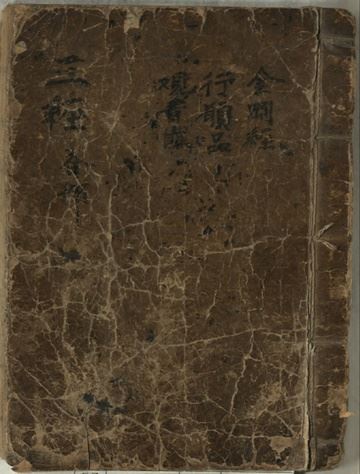 金剛經
行願品
觀音
三經合部